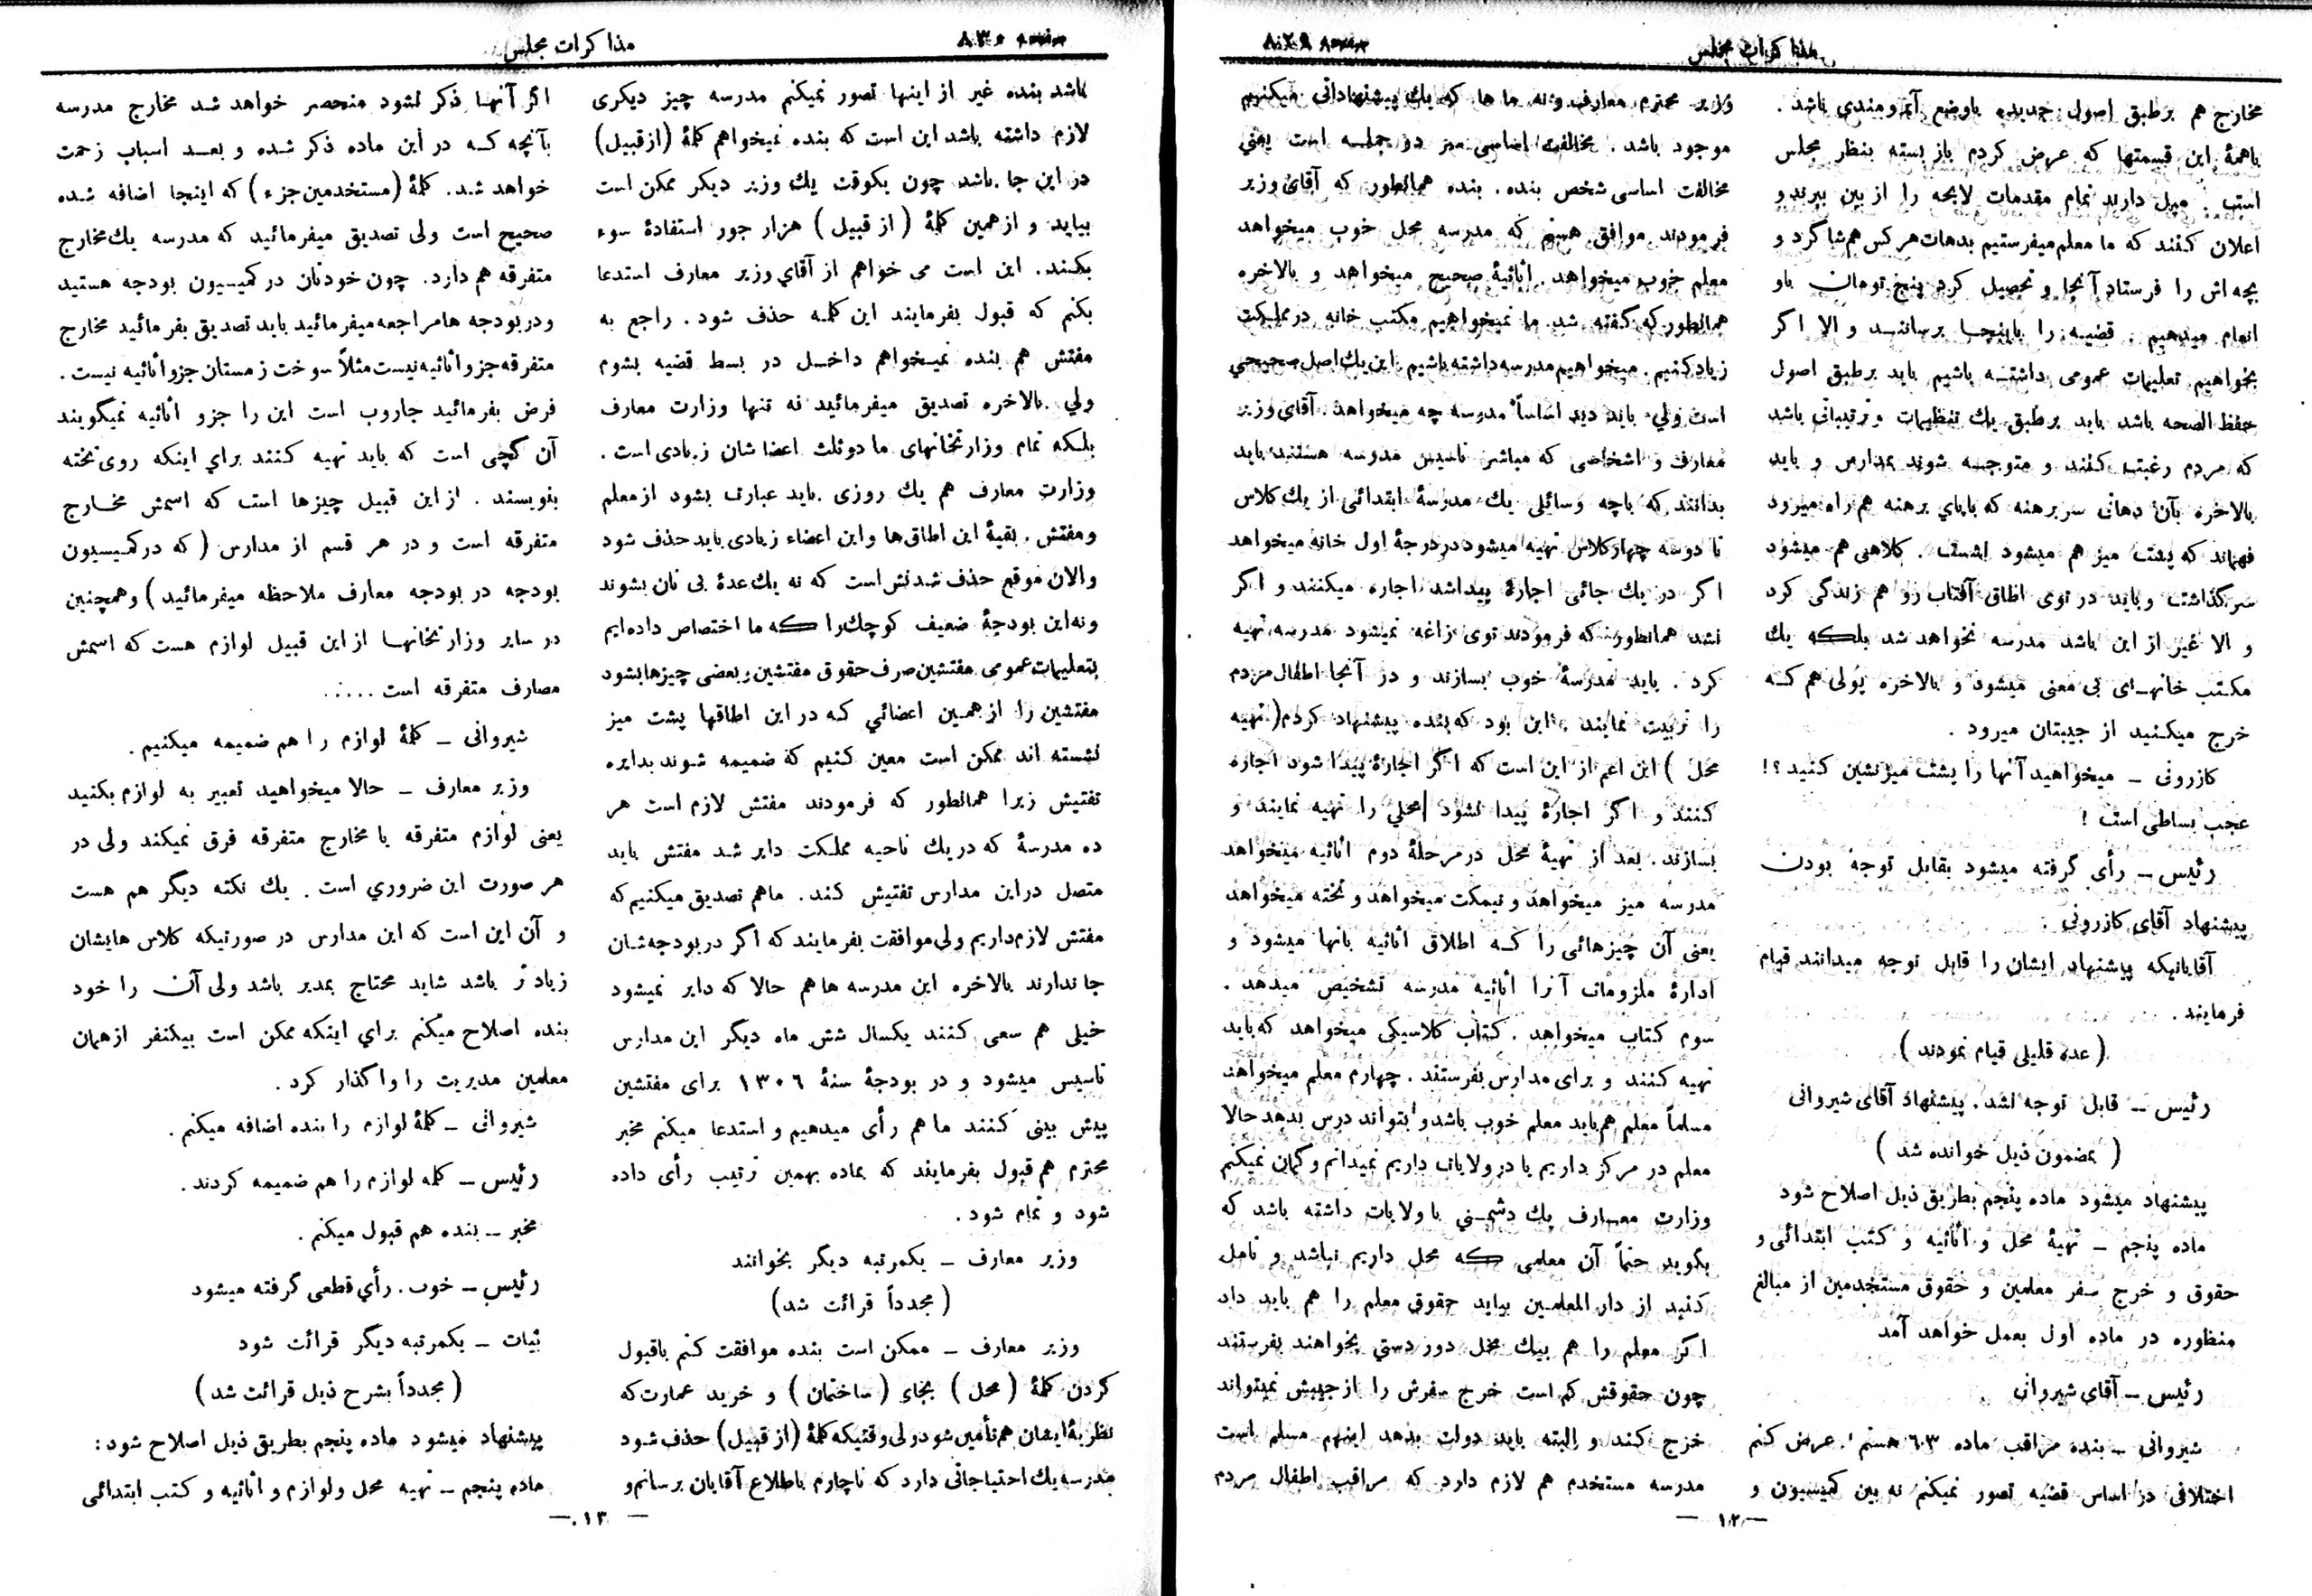 مذاکرات مجلس
صفحه ۸۲۹
مخارج هم برطبق اصول جدیده باوضع آبرومندی باشد .
باهمهٔ این قسمتها که عرض کردم باز بسته بنظر مجلس
است . میل دارند تمام مقدمات لایحه را از بین ببرند و
اعلان کنند که ما معلم میفرستیم بدهات هرکس هم شاگرد و
بچه اش را فرستاد آنجا و تحصیل کرد پنج تومان باو
انعام میدهیم . قضیه را باینجا برسانند و الا اگر
بخواهیم تعلیمات عمومی داشته باشیم باید برطبق اصول
حفظ الصحه باشد باید برطبق یك تنظیمات و ترتیباتی باشد
که مردم رغبت کنند و متوجه شوند بمدارس و باید
بالاخره بآن دهاتی سر برهنه که باپای برهنه هم راه میرود
فهماند که پشت میز هم میشود نشست . کلاهی هم میشود
سر گذاشت و باید در توی اطاق آفتاب رو هم زندگی کرد
و الا غیر از این باشد مدرسه نخواهد شد بلکه یك
مکتب خانه‌ای بی معنی میشود و بالاخره پولی هم که
خرج میکنید از جیبتان میرود .
کازرونی ــ میخواهید آنها را پشت میز نشین کنید ؟!
عجب بساطی است !
رئیس ــ رأی گرفته میشود بقابل توجه بودن
پیشنهاد آقای کازرونی .
آقایانیکه پیشنهاد ایشان را قابل توجه میدانند قیام
فرمایند .
( عده قلیلی قیام نمودند )
رئیس ــ قابل توجه نشد . پیشنهاد آقای شیروانی
( بمضمون ذیل خوانده شد )
پیشنهاد میشود ماده پنجم بطریق ذیل اصلاح شود
ماده پنجم ــ تهیهٔ محل و اثاثیه و کتب ابتدائی و
حقوق و خرج سفر معلمین و حقوق مستخدمین از مبالغ
منظوره در ماده اول بعمل خواهد آمد
رئیس ــ آقای شیروانی
شیروانی ــ بنده مراقب ماده ٦٣ هستم . عرض کنم
اختلافی در اساس قضیه تصور نمیکنم نه بین کمیسیون و
وزیر محترم معارف و نه ما ها که یك پیشنهاداتی میکنیم
موجود باشد . مخالفت اساسی سر دو جمله است یعنی
مخالفت اساسی شخص بنده . بنده همانطور که آقای وزیر
فرمودند موافق هستم که مدرسه محل خوب میخواهد
معلم خوب میخواهد . اثاثیهٔ صحیح میخواهد و بالاخره
همانطور که گفته شد ما نمیخواهیم مکتب خانه در مملکت
زیاد کنیم . میخواهیم مدرسه داشته باشیم این یك اصل صحیحی
است ولی باید دید اساساً مدرسه چه میخواهد . آقای وزیر
معارف و اشخاصی که مباشر تاسیس مدرسه هستند باید
بدانند که باچه وسائلی یك مدرسهٔ ابتدائی از یك کلاس
تا دو سه چهار کلاس تهیه میشود در درجهٔ اول خانه میخواهد
اگر در یك جائی اجارهٔ پیدا شد اجاره میکنند و اگر
نشد همانطور که فرمودند توی زاغه نمیشود مدرسه تهیه
کرد . باید مدرسهٔ خوب بسازند و در آنجا اطفال مردم
را تربیت نمایند . این بود که بنده پیشنهاد کردم ( تهیه
محل ) این اعم از این است که اگر اجارهٔ پیدا شود اجاره
کنند و اگر اجارهٔ پیدا نشود محلی را تهیه نمایند و
بسازند . بعد از تهیهٔ محل در مرحلهٔ دوم اثاثیه میخواهد
مدرسه میز میخواهد و نیمکت میخواهد و تخته میخواهد
یعنی آن چیزهائی را که اطلاق اثاثیه بآنها میشود و
ادارهٔ ملزومات آنرا اثاثیه مدرسه تشخیص میدهد .
سوم کتاب میخواهد . کتاب کلاسیکی میخواهد که باید
تهیه کنند و برای مدارس بفرستند . چهارم معلم میخواهد
مسلماً معلم هم باید معلم خوب باشد و بتواند درس بدهد حالا
معلم در مرکز داریم یا در ولایات داریم نمیدانم و گمان نمیکنم
وزارت معارف یك دشمنی با ولایات داشته باشد که
بگوید حتماً آن معلمی که محل داریم نباشد و تامل
کنید از دار المعلمین بیاید حقوق معلم را هم باید داد
اگر معلم را هم بیك محل دور دستی بخواهند بفرستند
چون حقوقش کم است خرج سفرش را از جیبش نمیتواند
خرج کند و البته باید دولت بدهد اینهم مسلم است
مدرسه مستخدم هم لازم دارد که مراقب اطفال مردم
— ١٢ —
صفحه ۸۳۰
مذاکرات مجلس
باشد بنده غیر از اینها تصور نمیکنم مدرسه چیز دیگری
لازم داشته باشد این است که بنده نمیخواهم کلمهٔ ( از قبیل )
در این جا باشد چون یکوقت یك وزیر دیگر ممکن است
بیاید و از همین کلمهٔ ( از قبیل ) هزار جور استفادهٔ سوء
بکند . این است می خواهم از آقای وزیر معارف استدعا
بکنم که قبول بفرمایند این کلمه حذف شود . راجع به
مفتش هم بنده نمیخواهم داخل در بسط قضیه بشوم
ولی بالاخره تصدیق میفرمائید نه تنها وزارت معارف
بلکه تمام وزارتخانهای ما دو ثلث اعضا شان زیادی است .
وزارت معارف هم یك روزی باید عبارت بشود از معلم
و مفتش . بقیهٔ این اطاق‌ها و این اعضاء زیادی باید حذف شود
و الان موقع حذف شدنش است که نه یك عدهٔ بی نان بشوند
و نه این بودجهٔ ضعیف کوچك را که ما اختصاص داده‌ایم
بتعلیمات عمومی مفتشین صرف حقوق مفتشین و بعضی چیزها بشود
مفتشین را از همین اعضائی که در این اطاقها پشت میز
نشسته اند ممکن است معین کنیم که ضمیمه شوند بدایره
تفتیش زیرا همانطور که فرمودند مفتش لازم است هر
ده مدرسهٔ که در یك ناحیه مملکت دایر شد مفتش باید
متصل در این مدارس تفتیش کند . ماهم تصدیق میکنیم که
مفتش لازم داریم ولی موافقت بفرمایند که اگر در بودجه‌شان
جا ندارند بالاخره این مدرسه ها هم حالا که دایر نمیشود
خیلی هم سعی کنند یکسال شش ماه دیگر این مدارس
تاسیس میشود و در بودجهٔ سنهٔ ١٣٠٦ برای مفتشین
پیش بینی کنند ما هم رأی میدهیم و استدعا میکنم مخبر
محترم هم قبول بفرمایند که بماده بهمین ترتیب رأی داده
شود و تمام شود .
وزیر معارف ــ یکمرتبه دیگر بخوانند
( مجدداً قرائت شد )
وزیر معارف ــ ممکن است بنده موافقت کنم باقبول
کردن کلمهٔ ( محل ) بجای ( ساختمان ) و خرید عمارت که
نظریهٔ ایشان هم تأمین شود ولی وقتیکه کلمهٔ ( از قبیل ) حذف شود
مدرسه یك احتیاجاتی دارد که ناچارم باطلاع آقایان برسانم و
اگر آنها ذکر نشود منحصر خواهد شد مخارج مدرسه
بآنچه که در این ماده ذکر شده و بعد اسباب زحمت
خواهد شد . کلمهٔ ( مستخدمین جزء ) که اینجا اضافه شده
صحیح است ولی تصدیق میفرمائید که مدرسه یك مخارج
متفرقه هم دارد . چون خودتان در کمیسیون بودجه هستید
و در بودجه ها مراجعه میفرمائید باید تصدیق بفرمائید مخارج
متفرقه جزو اثاثیه نیست مثلاً سوخت زمستان جزو اثاثیه نیست .
فرض بفرمائید جاروب است این را جزو اثاثیه نمیگویند
آن گچی است که باید تهیه کنند برای اینکه روی تخته
بنویسند . از این قبیل چیزها است که اسمش مخارج
متفرقه است و در هر قسم از مدارس ( که در کمیسیون
بودجه در بودجه معارف ملاحظه میفرمائید ) و همچنین
در سایر وزارتخانها از این قبیل لوازم هست که اسمش
مصارف متفرقه است .....
شیروانی ــ کلمهٔ لوازم را هم ضمیمه میکنیم .
وزیر معارف ــ حالا میخواهید تعبیر به لوازم بکنید
یعنی لوازم متفرقه یا مخارج متفرقه فرق نمیکند ولی در
هر صورت این ضروری است . یك نکته دیگر هم هست
و آن این است که این مدارس در صورتیکه کلاس هایشان
زیاد تر باشد شاید محتاج بمدیر باشد ولی آن را خود
بنده اصلاح میکنم برای اینکه ممکن است بیکنفر از همان
معلمین مدیریت را واگذار کرد .
شیروانی ــ کلمهٔ لوازم را بنده اضافه میکنم .
رئیس ــ کلمه لوازم را هم ضمیمه کردند .
مخبر ــ بنده هم قبول میکنم .
رئیس ــ خوب . رأی قطعی گرفته میشود
بیات ــ یکمرتبه دیگر قرائت شود
( مجدداً بشرح ذیل قرائت شد )
پیشنهاد میشود ماده پنجم بطریق ذیل اصلاح شود :
ماده پنجم ــ تهیه محل و لوازم و اثاثیه و کتب ابتدائی
— ١٣ —